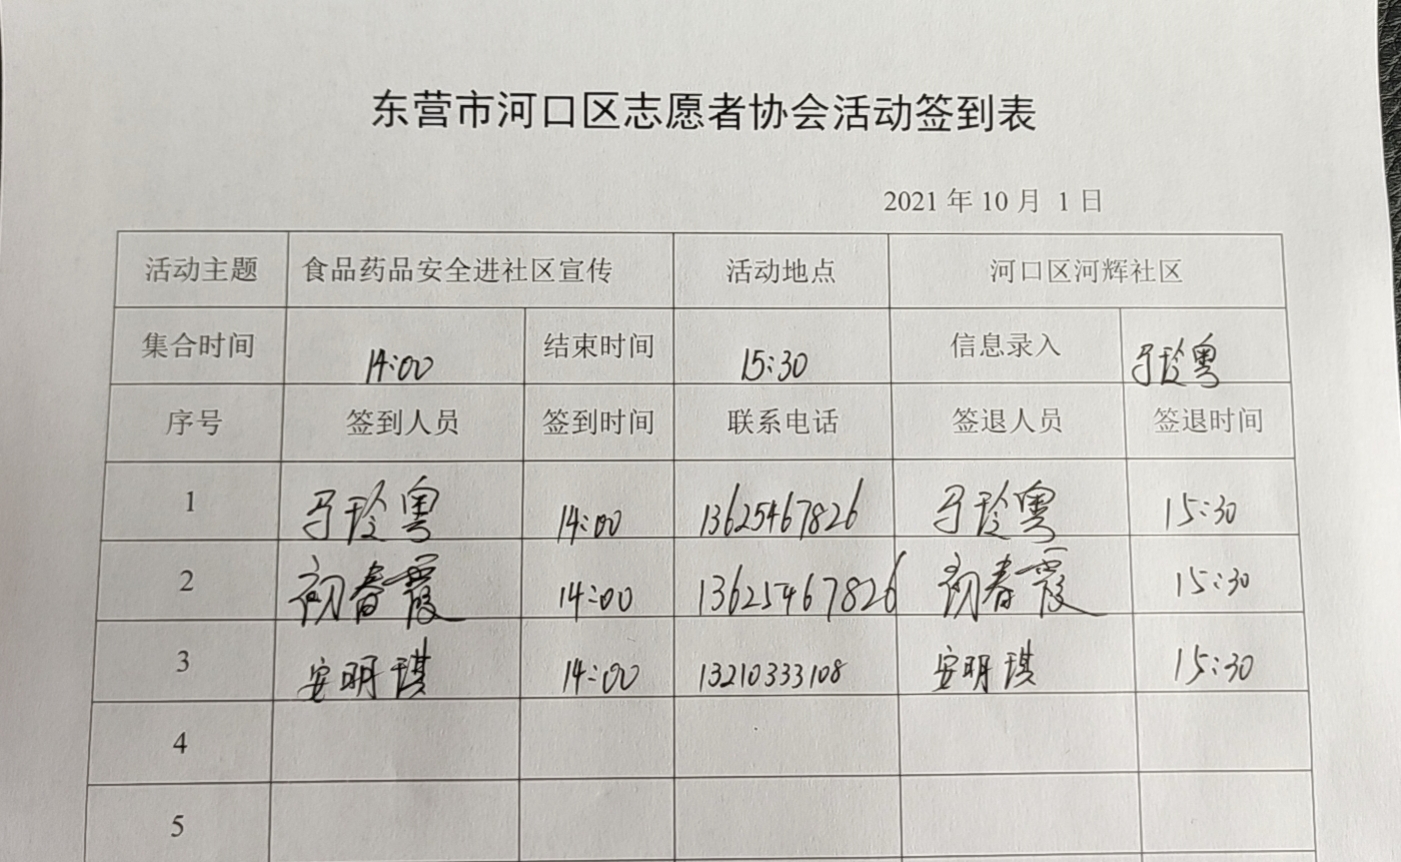 东营市河口区志愿者协会活动签到表
2021 年 10 月 1 日
活动主题 食品药品安全进社区宣传 活动地点 河口区河辉社区
集合时间 14:00 结束时间 15:30 信息录入 于玲粤
序号 签到人员 签到时间 联系电话 签退人员 签退时间
1 于玲粤 14:00 13625467826 于玲粤 15:30
2 初春霞 14:00 13625467826 初春霞 15:30
3 安明琪 14:00 13210333108 安明琪 15:30
4
5